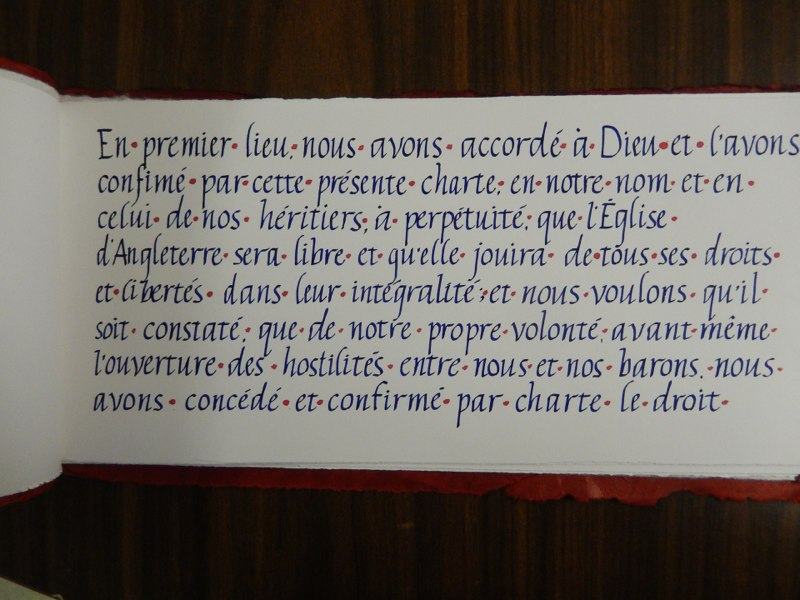 En·premier·lieu, nous·avons·accordé·à·Dieu·et·l'avons
confimé·par·cette·présente·charte, en·notre·nom·et·en·
celui·de·nos·héritiers, à·perpétuité, que·l'Église·
d'Angleterre·sera·libre·et·qu'elle·jouira·de·tous·ses·droits·
et·libertés·dans·leur·intégralité; et·nous·voulons·qu'il·
soit·constaté, que·de·notre·propre·volonté, avant·même·
l'ouverture·des·hostilités·entre·nous·et·nos·barons, nous·
avons·concédé·et·confirmé·par·charte·le·droit·